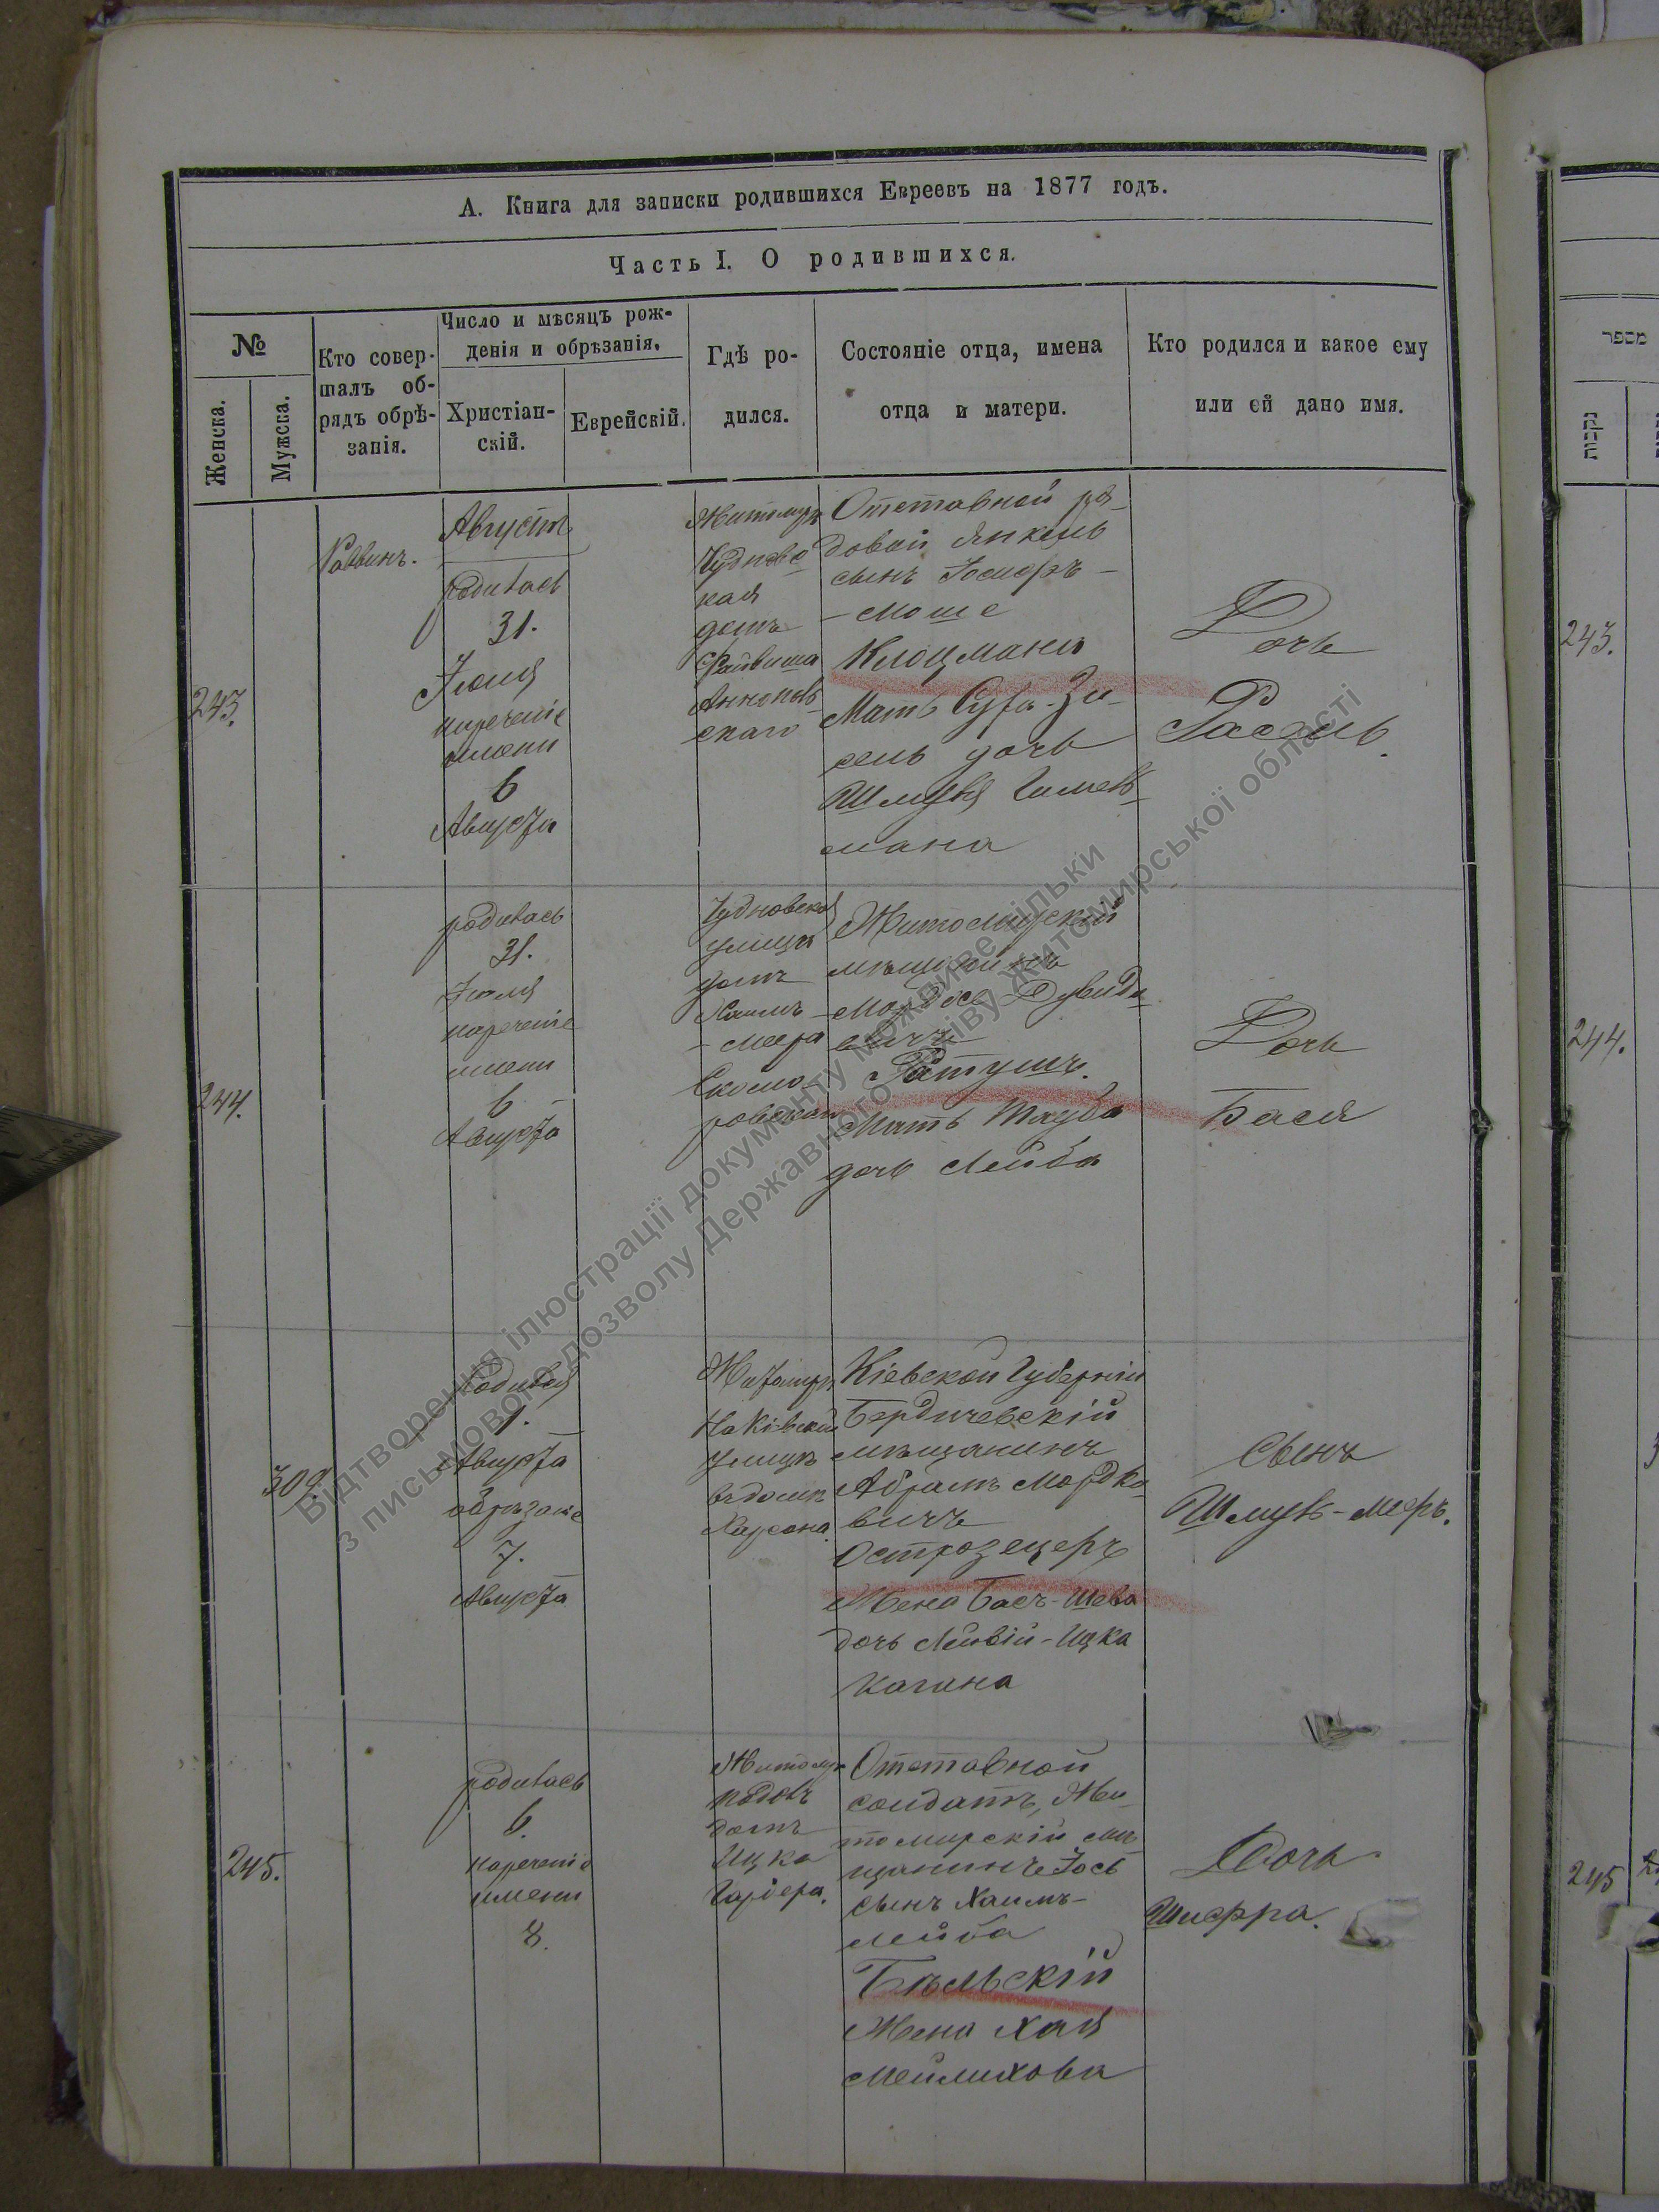 А. Книга для записки родившихся Евреевъ на 1877 годъ.
Часть I. О родившихся.
№
Женска.
Мужска.
Кто совер-
шалъ об-
рядъ обрѣ-
занія.
Число и мѣсяцъ рож-
денія и обрѣзанія.
Христіан-
скій.
Еврейскій.
Гдѣ ро-
дился.
Состояніе отца, имена
отца и матери.
Кто родился и какое ему
или ей дано имя.
243.
Раввинъ.
Августъ
родилась
31.
Іюля
нареченіе
имени
6
Августа
Житомиръ
Чудновс
кая
домъ
Файвиша
скаго
Отставной ря-
довой Янкель
сынъ Іосифъ-
-Моше
Клоцманъ
Мать Сура-Зи-
сель дочь
Шмуля Гитель-
мана
Дочь
Рахель.
244.
родилась
31.
Іюля
нареченіе
имени
6
Августа
Чудновской
улицы
домъ
Хаимъ
-Меера
Скомо-
ровской
Житомирскій
мѣщанинъ
Мордко Дувидо-
вичъ
Ратушъ.
Мать Тауба
дочь Лейба
Дочь
Бася
302
Родился
1.
Августа
обрѣзаніе
7.
Августа
Житомиръ
улицѣ
въ домѣ
Херсона.
Кіевской Губерніи
Бердичевскій
мѣщанинъ
Абрамъ Мордко-
вичъ
Острозецеръ
Жена Бася-Шева
дочь Лейвій-Ицка
Кагана
Сынъ
Шмуль-Мееръ.
245.
родилась
6.
нареченіе
имени
8.
Житомиръ
домъ
Ицка
Гарбера.
Отставной
солдатъ, Жи-
томирскій мѣ-
щанинъ Іось
сынъ Хаимъ-
Лейба
Бѣльскій
Жена Хая
Мейлихова
Дочь
Шифра.
מספר
נקבות
243.
244.
245
Відтворення ілюстрації документу можливе тільки
з письмового дозволу Державного архіву Житомирської області